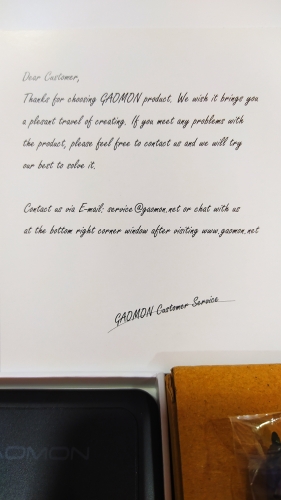 Dear Customer,
Thanks for choosing GAOMON product. We wish it brings you
a plesant travel of creating. If you meet any problems with
the product, please feel free to contact us and we will try
our best to solve it.
Contact us via E-mail: service@gaomon.net or chat with us
at the bottom right corner window after visiting www.gaomon.net
GAOMON Customer Service
GAOMON